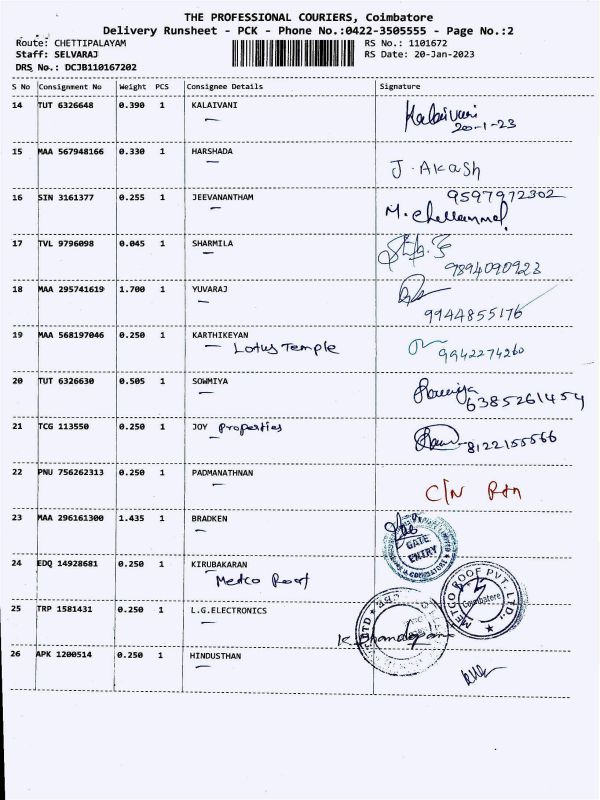 THE PROFESSIONAL COURIERS, Coimbatore
Delivery Runsheet - PCK - Phone No.:0422-3505555 - Page No.:2
Route: CHETTIPALAYAM RS No.: 1101672
Staff: SELVARAJ RS Date: 20-Jan-2023
DRS No.: DCJB110167202
S No Consignment No Weight PCS Consignee Details Signature
14 TUT 6326648 0.390 1 KALAIVANI Kalaivani
20-1-23
15 MAA 567948166 0.330 1 HARSHADA
J. Akash
16 SIN 3161377 0.255 1 JEEVANANTHAM 9597972302
M. Chellammal
17 TVL 9796098 0.045 1 SHARMILA
9894090923
18 MAA 295741619 1.700 1 YUVARAJ
9944855176
19 MAA 568197046 0.250 1 KARTHIKEYAN
Lotus Temple 9942274260
20 TUT 6326630 0.505 1 SOWMIYA Sowmiya
6385261454
21 TCG 113550 0.250 1 JOY Properties
8122155566
22 PNU 756262313 0.250 1 PADMANATHNAN
C/N Rtn
23 MAA 296161300 1.435 1 BRADKEN
GATE
ENTRY
COIMBATORE
24 EDQ 14928681 0.250 1 KIRUBAKARAN
Metco Roof
METCO ROOF PVT. LTD.,
Coimbatore
25 TRP 1581431 0.250 1 L.G.ELECTRONICS
26 APK 1200514 0.250 1 HINDUSTHAN